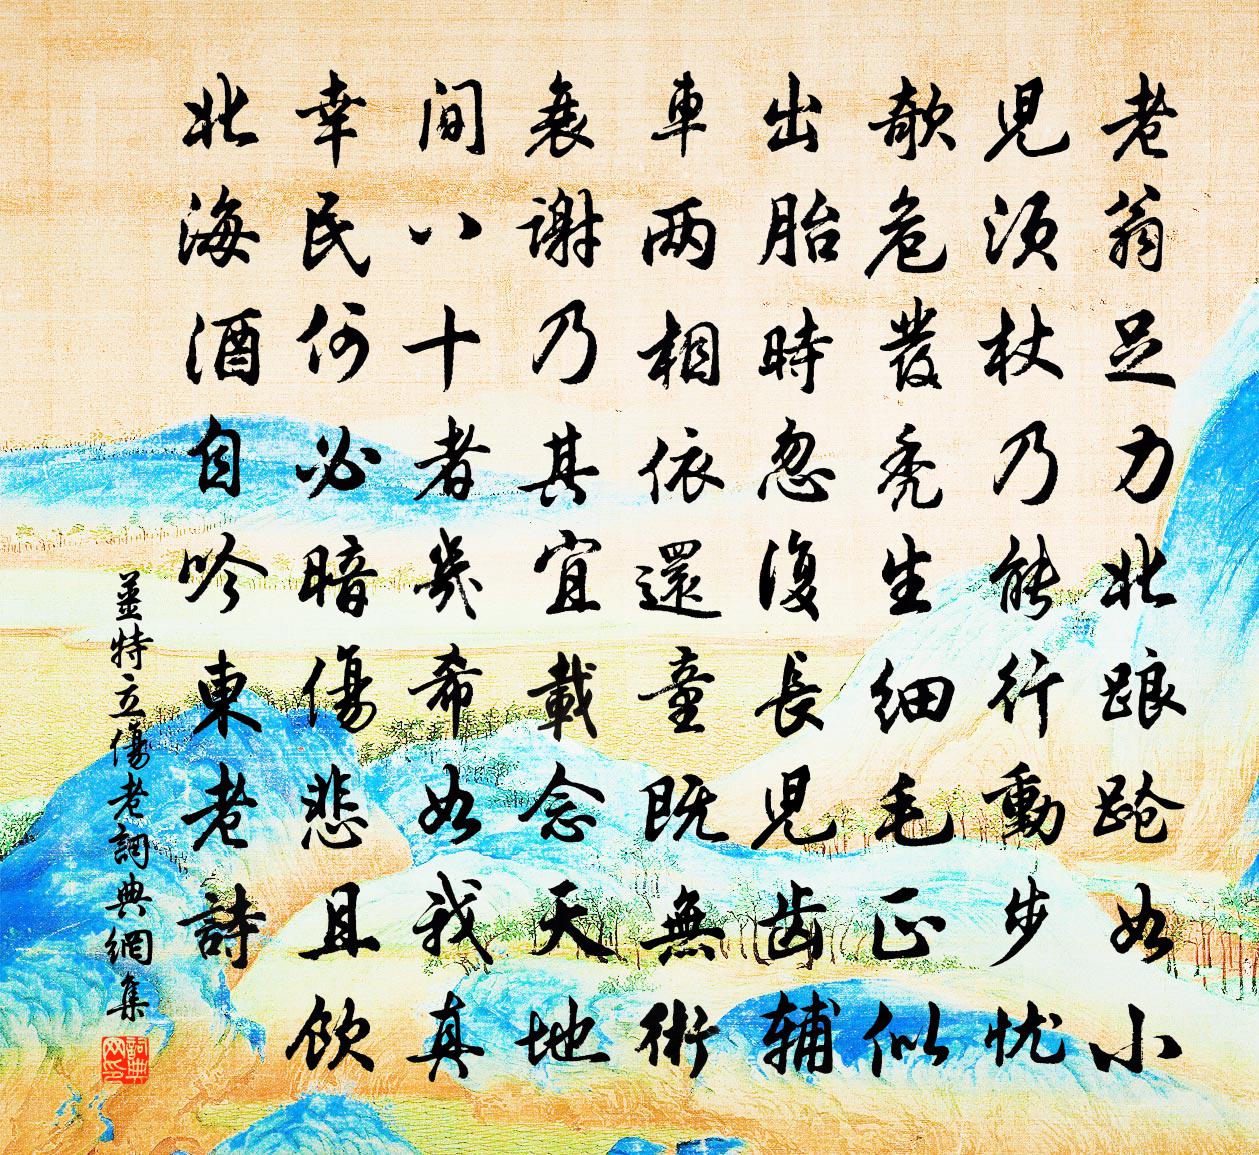 老翁足力北踉蹌如小
兒須杖乃能行動步忧
欹危發禿生細毛正似
出胎時忽復長兒齿輔
車两相依還童既無術
衰謝乃其宜載念天地
間八十者幾希如我真
幸民何必暗傷悲且飲
北海酒自吟東老詩
薑特立傷老詞典網集